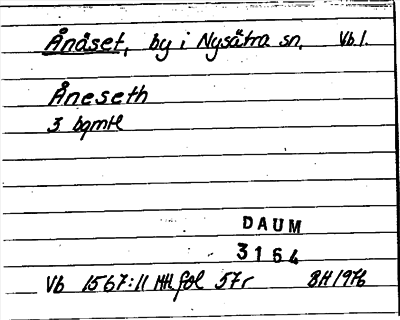 Ånäset, by i Nysätra sn, Vb.l.
Åneseth
3 bqmtl
DAUM
3164
Vb 1567:11 HH fol 57r BH 1976